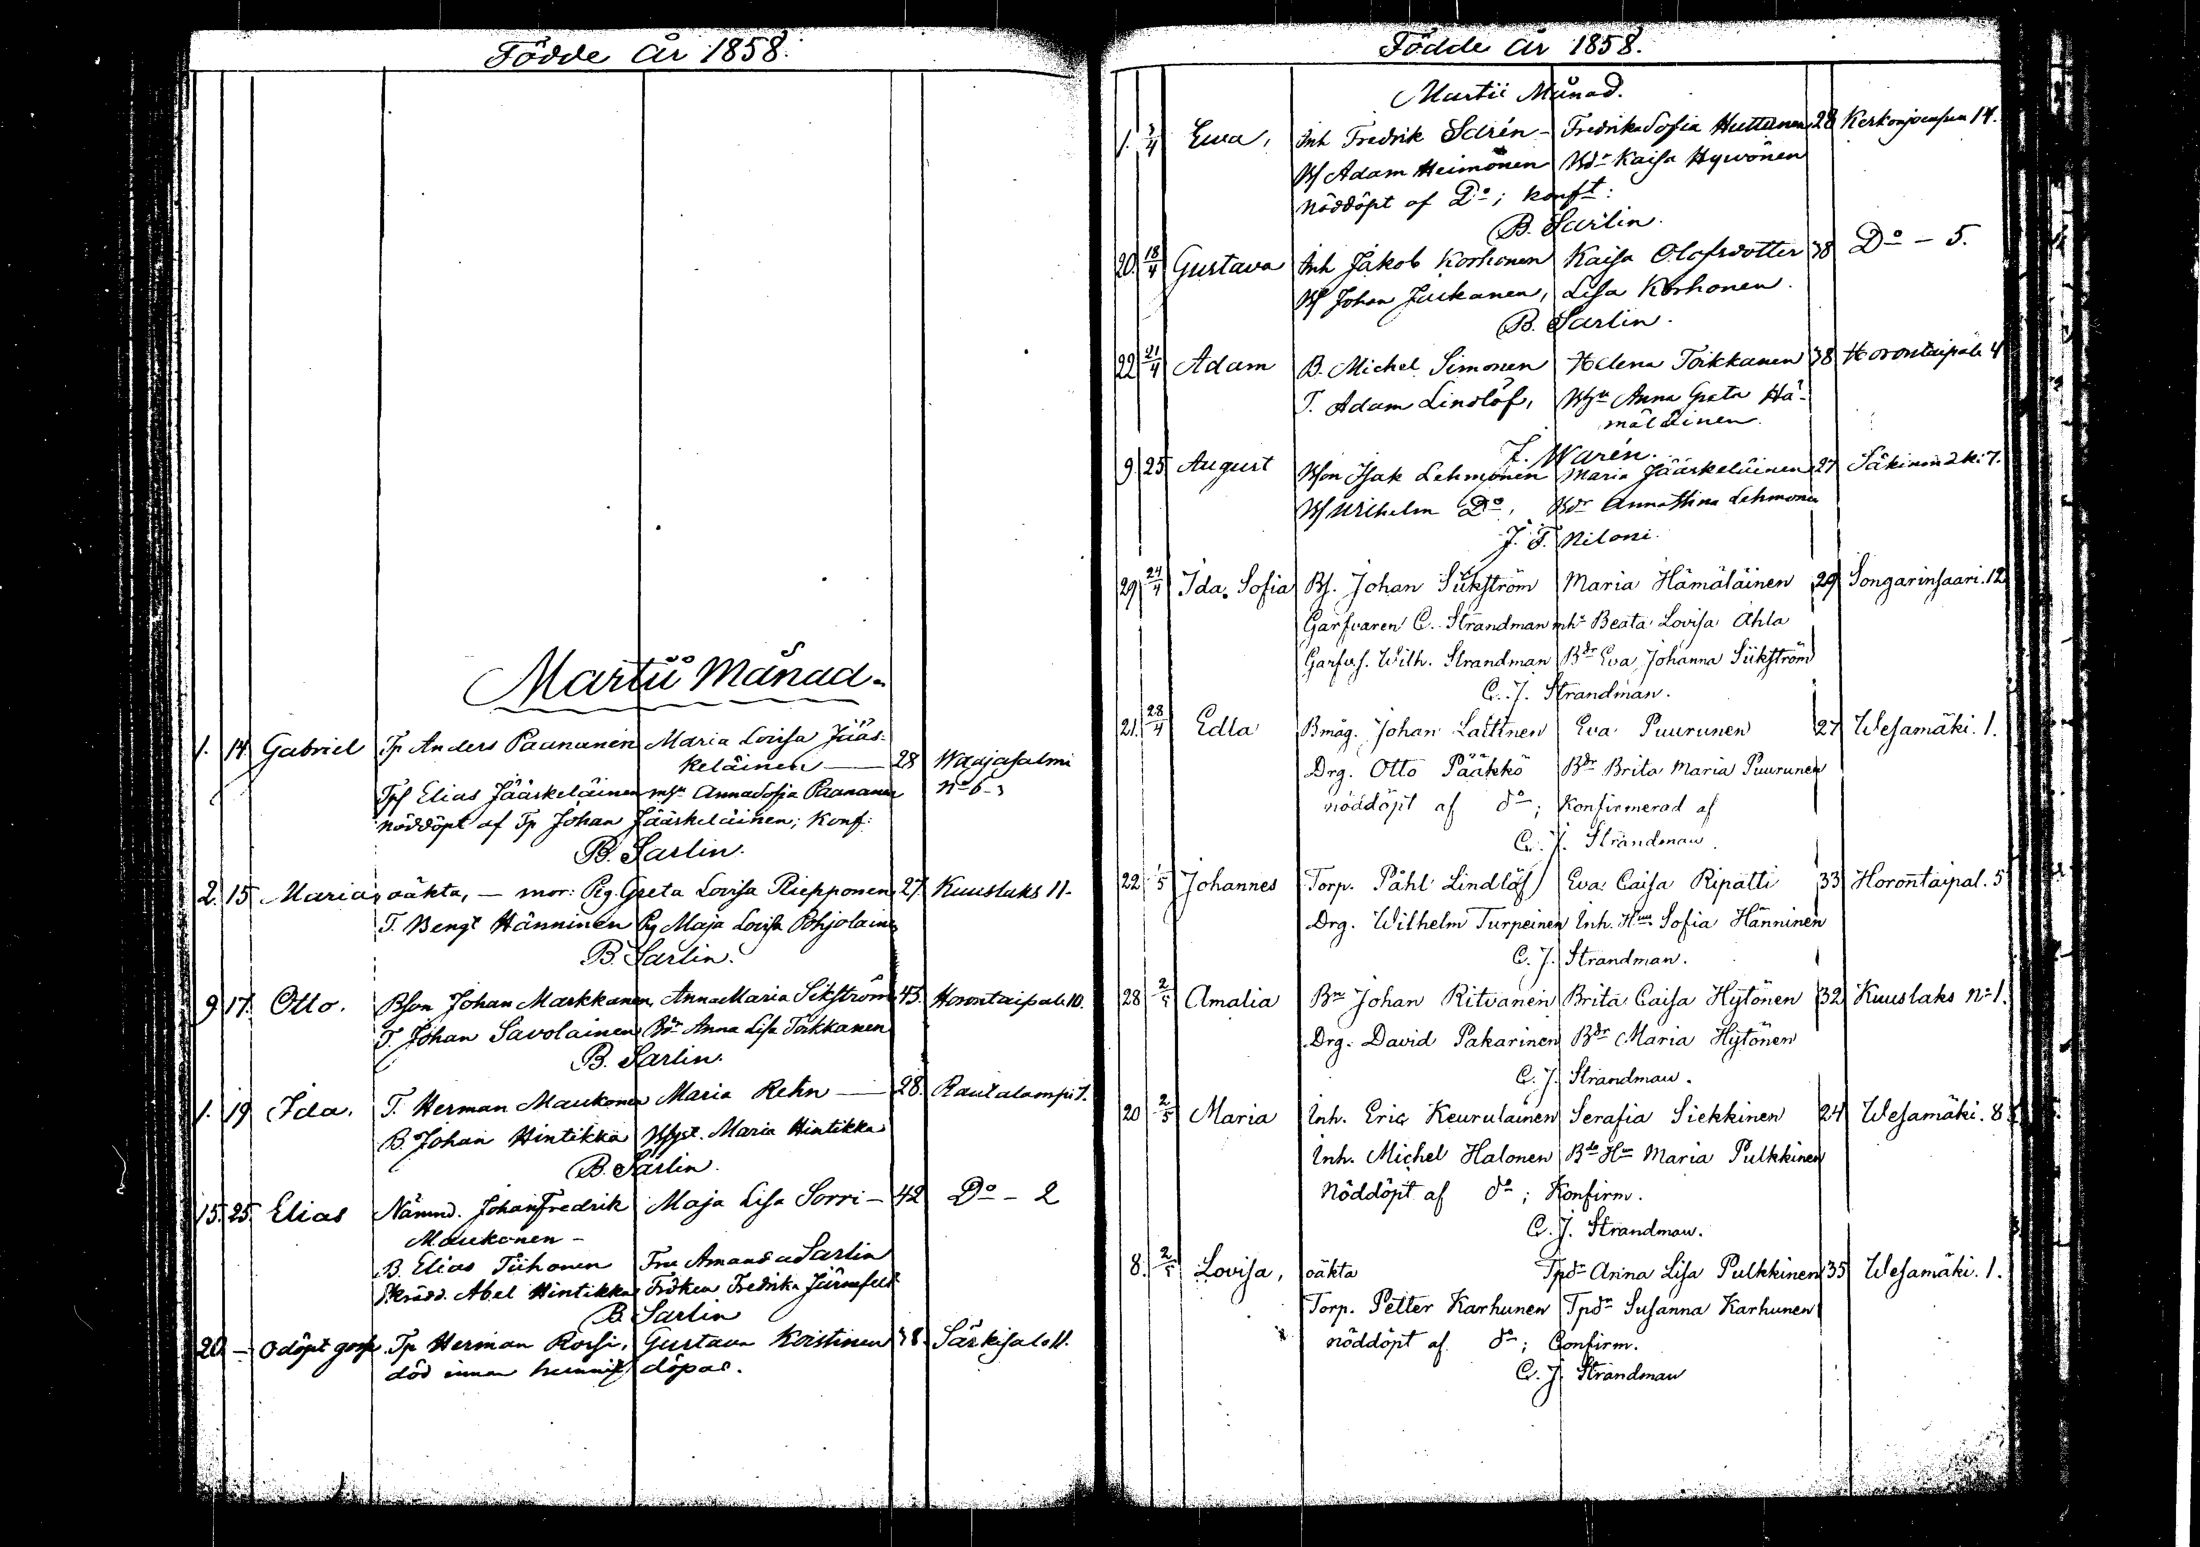 Födde År 1858.
Martii Månad.
1. 14 Gabriel Tp Anders Paananen Maria Lovisa Jääs-
keläinen — 28 Waajasalmi
Tps Elias Jääskeläinen Anna Sofia Paananen No 6
nöddöpt af Tp Johan Jääskeläinen; Konf:
B. Sarlin.
2. 15 Maria, oäkta, — mor: Pig. Greta Lovisa Riepponen 27 Kuuslaks 11.
T. Bengt Hänninen Pg Maja Lovisa Pohjolainen
B. Sarlin.
9. 17. Otto. Bson Johan Markkanen, Anna Maria Sikström 43. Horontaipale 10.
T. Johan Savolainen Anna Lisa Toikkanen
B. Sarlin.
1. 19 Ida. T. Herman Maukonen Maria Rehn — 28. Rautalampi 7.
B. Johan Hintikka Maria Hintikka
B. Sarlin.
15. 25. Elias Nämnd. Johan Fredrik Maja Lisa Sorri — 42 Do — 2
Maukonen —
B. Elias Tiihonen Fru Amanda Sarlin
Abel Hintikka Fröken Fredrika Järnefelt
B. Sarlin
20 — Odöpt Tp Herman Gustava Koistinen 38. Särkisalo 11.
död innan hunnit döpas.
Födde År 1858.
Martii Månad.
1. 3/4 Ewa, Inh Fredrik Sarén — Fredrika Sofia Huttunen 28 Kerkonjoensuu 14.
Adam Heimonen Kaisa Hyvönen
nöddöpt af Do; konft:
B. Sarlin.
20. 18/4 Gustava Inh Jakob Korhonen Kaisa Olofsdotter 38 Do — 5.
Johan Lisa Korhonen.
B. Sarlin.
22 21/4 Adam B. Michel Simonen Helena Toikkanen 38 Horontaipale 4
T. Adam Lindlöf, Anna Greta Hä-
mäläinen.
F. Warén.
9 25 August Isak Lehmonen Maria Jääskeläinen 27 Säkinmäki 7.
Wilhelm Do, Anna Stina Lehmonen
J. F. Niloni.
29 24/4 Ida Sofia Bs. Johan Siikström Maria Hämäläinen 29 Songarinsaari. 12
Garfvaren C. Strandman Beata Lovisa Ahla
Garfv.s. Wilh. Strandman Bdr Eva Johanna Siikström
C. J. Strandman.
21. 28/4 Edla Bmåg. Johan Laitinen Eva Puurunen 27 Wesamäki. 1.
Drg. Otto Pääkkö Bdr Brita Maria Puurunen
nöddöpt af do; Konfirmerad af
C. J. Strandman
22 1/5 Johannes Torp. Påhl Lindlöf Eva Caisa Ripatti 33 Horontaipal. 5
Drg. Wilhelm Turpeinen Inh. Hu Sofia Hänninen
C. J. Strandman.
28 2/5 Amalia Bn Johan Ritvanen Brita Caisa Hytönen 32 Kuuslaks No 1.
Drg. David Pakarinen Bdr Maria Hytönen
C. J. Strandman.
20 2/5 Maria Inh. Eric Keurulainen Serafia Siekkinen 24 Wesamäki. 8
Inh. Michel Halonen Maria Pulkkinen
Nöddöpt af do; Konfirm.
C. J. Strandman.
8. 2/5 Lovisa, oäkta Tpdr Anna Lisa Pulkkinen 35 Wesamäki. 1.
Torp. Petter Karhunen Tpdr Susanna Karhunen
nöddöpt af do; Confirm.
C. J. Strandman